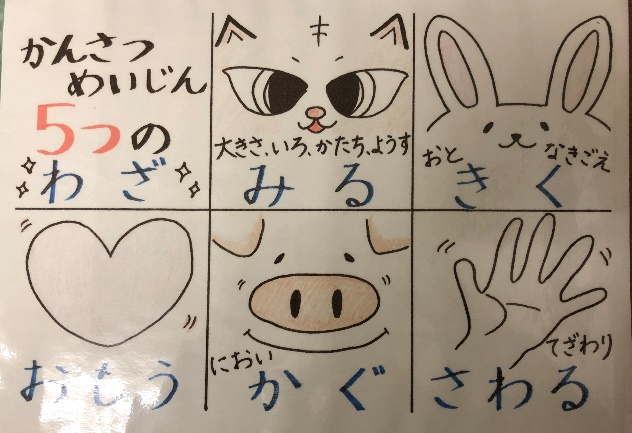 かんさつ
めいじん
5つの
わざ
大きさ、いろ、かたち、ようす
みる
おと
なきごえ
きく
おもう
におい
かぐ
てざわり
さわる